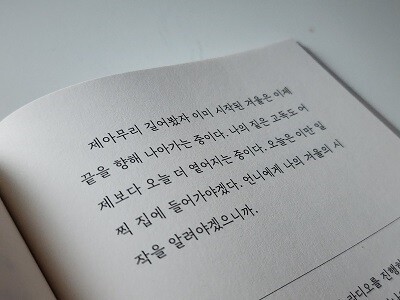 제아무리 길어봤자 이미 시작된 겨울은 이제
끝을 향해 나아가는 중이다. 나의 짙은 고독도 어
제보다 오늘 더 옅어지는 중이다. 오늘은 이만 일
찍 집에 들어가야겠다. 언니에게 나의 겨울의 시
작을 알려야겠으니까.
라디오를 진행하